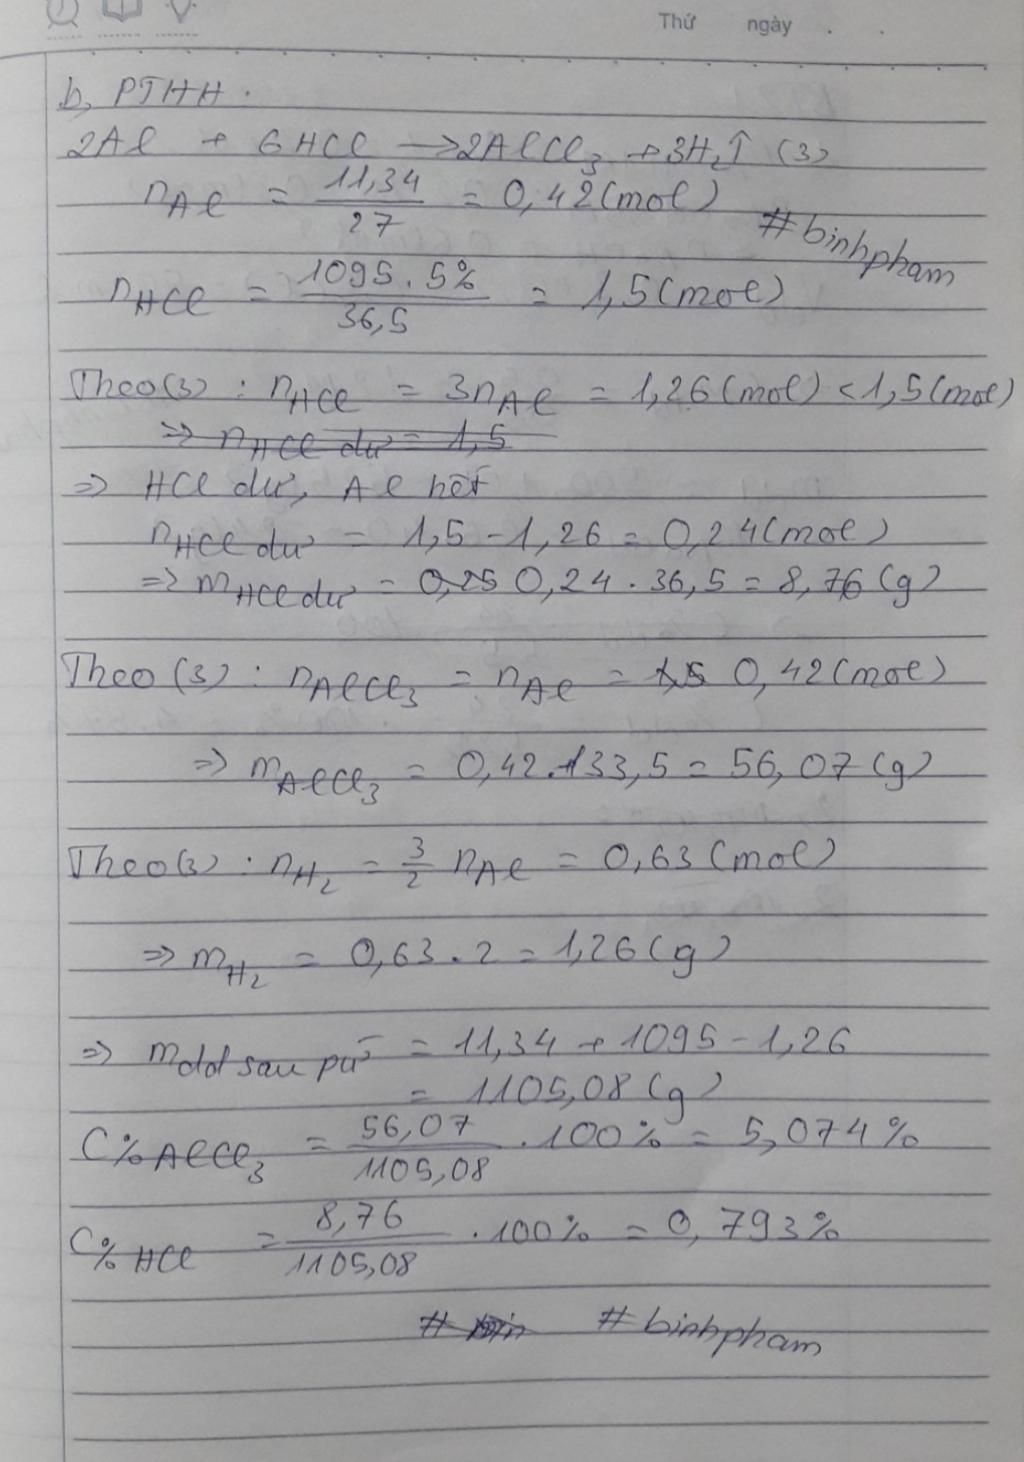 Thứ ngày . .
b, PTHH .
2Al + 6HCl → 2AlCl₃ + 3H₂↑ (3)
nAl = 11,34/27 = 0,42 (mol)
#binhpham
nHCl = 1095.5%/36,5 = 1,5 (mol)
Theo (3) : nHCl = 3nAl = 1,26 (mol) < 1,5 (mol)
⇒ nHCl dư = 1,5
⇒ HCl dư, Al hết
nHCl dư = 1,5 - 1,26 = 0,24 (mol)
⇒ mHCl dư = 0,25 0,24 . 36,5 = 8,76 (g)
Theo (3) : nAlCl₃ = nAl = 1,5 0,42 (mol)
⇒ mAlCl₃ = 0,42 . 133,5 = 56,07 (g)
Theo (3) : nH₂ = 3/2 nAl = 0,63 (mol)
⇒ mH₂ = 0,63 . 2 = 1,26 (g)
⇒ mdd sau pứ = 11,34 + 1095 - 1,26
= 1105,08 (g)
C% AlCl₃ = 56,07/1105,08 . 100% = 5,074%
C% HCl = 8,76/1105,08 . 100% = 0,793%
# bin #binhpham